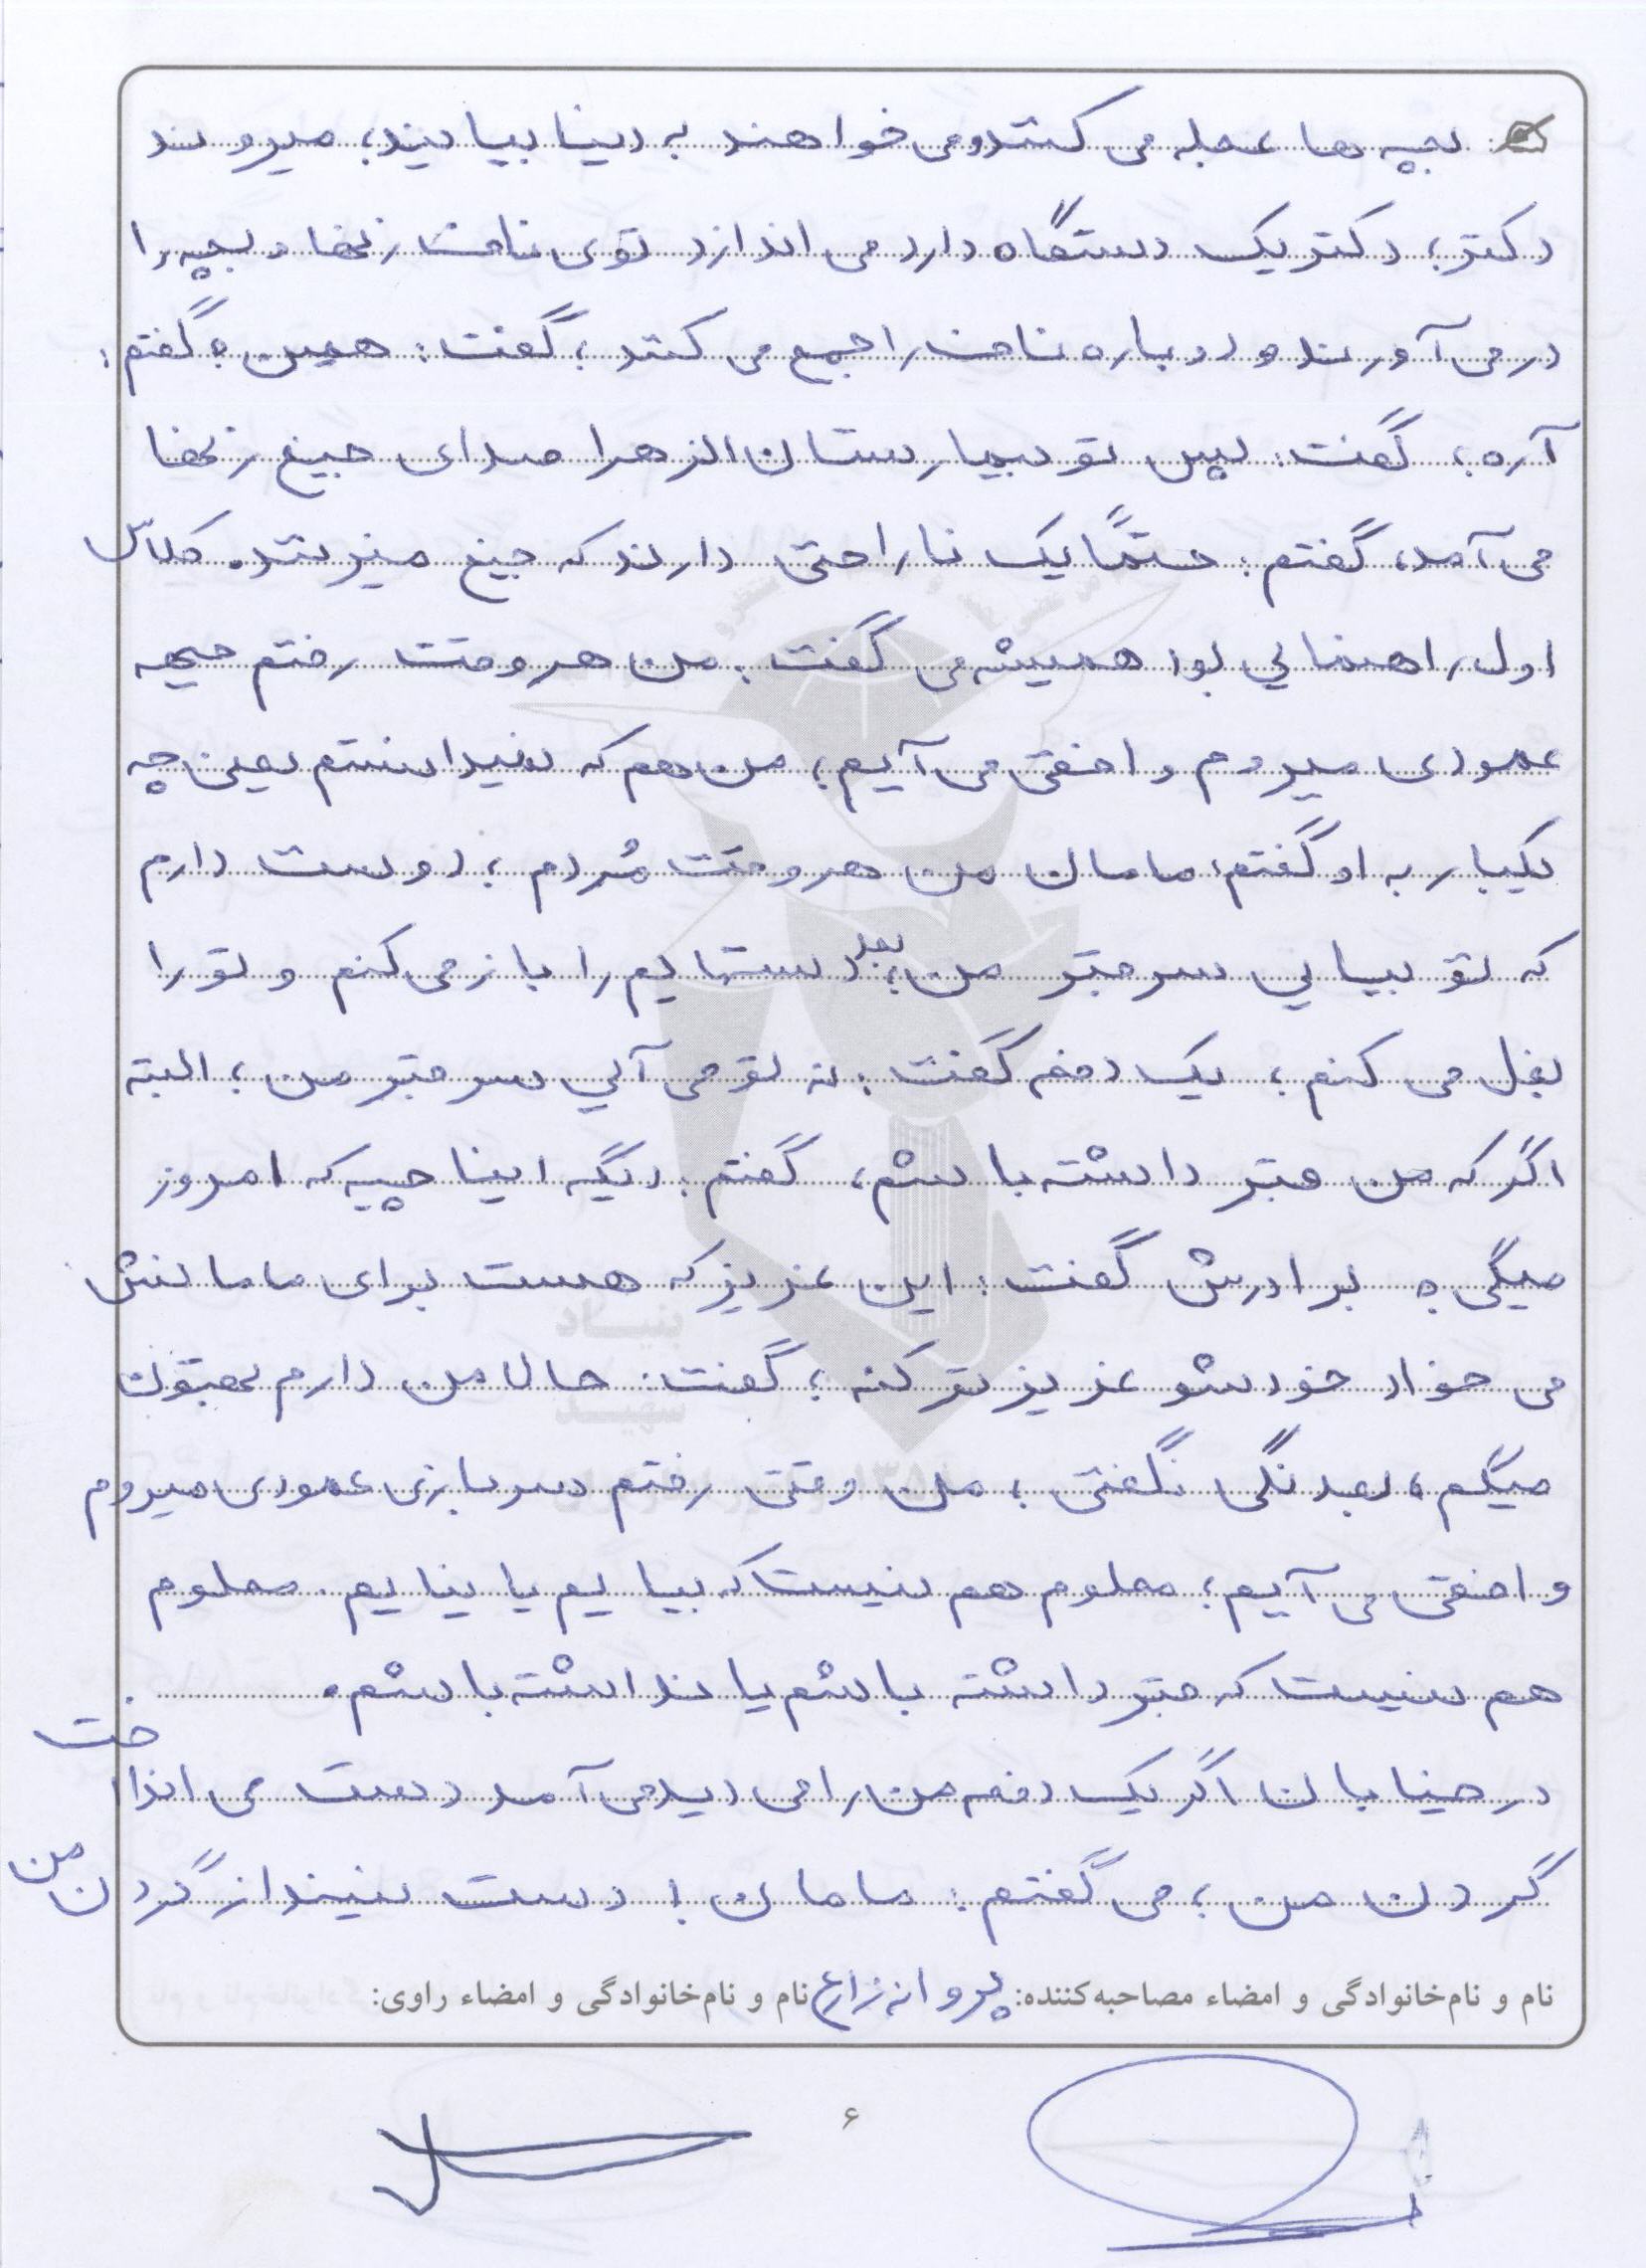 بچه ها عجله می کنند و می خواهند به دنیا بیایند؛ میروند
دکتر؛ دکتر یک دستگاه دارد می اندازد توی ناف زنها و بچه را
در می آورند و دوباره ناف را جمع می کنند؛ گفت: همین؟ گفتم:
آره؛ گفت: پس تو بیمارستان الزهرا صدای جیغ زنها
می آمد، گفتم: حتماً یک ناراحتی دارند که جیغ میزنند. کلاس
اول راهنمایی بود همیشه می گفت: من هر وقت رفتم جبهه
عمودی میروم و افقی می آیم؛ من هم که نمیدانستم یعنی چه
یکبار به او گفتم: مامان من هر وقت مُردم؛ دوست دارم
که تو بیایی سر قبر من؛ بعد دستهایم را باز می کنم و تو را
بغل می کنم؛ یک دفعه گفت: نه تو می آیی سر قبر من؛ البته
اگر که من قبر داشته باشم، گفتم: دیگه اینا چیه که امروز
میگی؟ برادرش گفت: این عزیز که هست برای مامانش
می خواد خودشو عزیزتر کنه؛ گفت: حالا من دارم بهتون
میگم، بعد نگی نگفتی؛ من وقتی رفتم سربازی عمودی میروم
و افقی می آیم؛ معلوم هم نیست که بیایم یا نیایم. معلوم
هم نیست که قبر داشته باشم یا نداشته باشم.
در خیابان اگر یک دفعه من را می دید می آمد دست می انداخت
گردن من؛ می گفتم: مامان! دست نینداز گردن من
نام و نام‌خانوادگی و امضاء مصاحبه‌کننده: پروانه زارع نام و نام‌خانوادگی و امضاء راوی:
۶
بنیاد
شهید